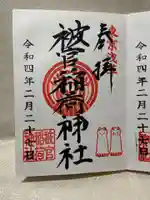 東京浅草
奉拝
被官稲荷神社
令和四年二月二十
令和四年二月二十